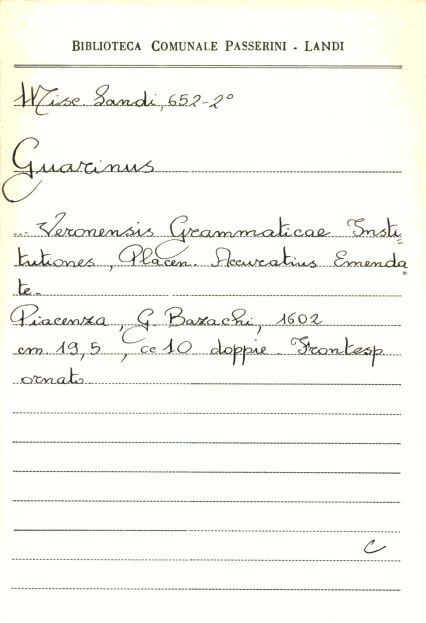 BIBLIOTECA COMUNALE PASSERINI - LANDI
Misc. Landi, 652-2°
Guarinus
... Veronensis Grammaticae Insti=
tutiones, Placen. Accuratius Emenda=
te.
Piacenza, G. Bazachi, 1602
cm. 19,5, cc 10 doppie. Frontesp
ornato.
C